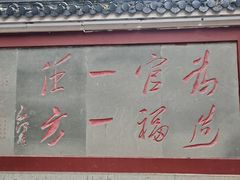 为官一任
造福一方